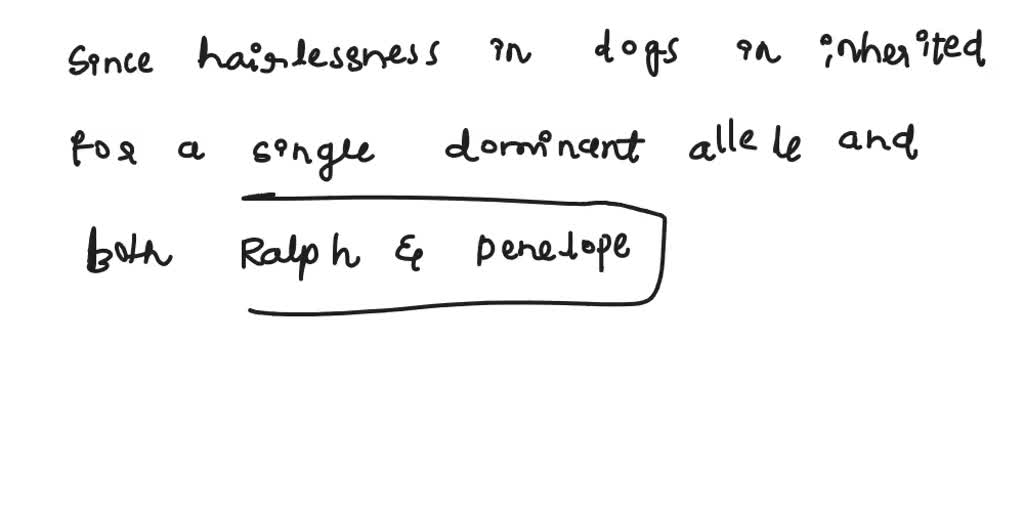 Since hairlessness in dogs in inherited
for a single dominant allele and
both Ralph & penelope